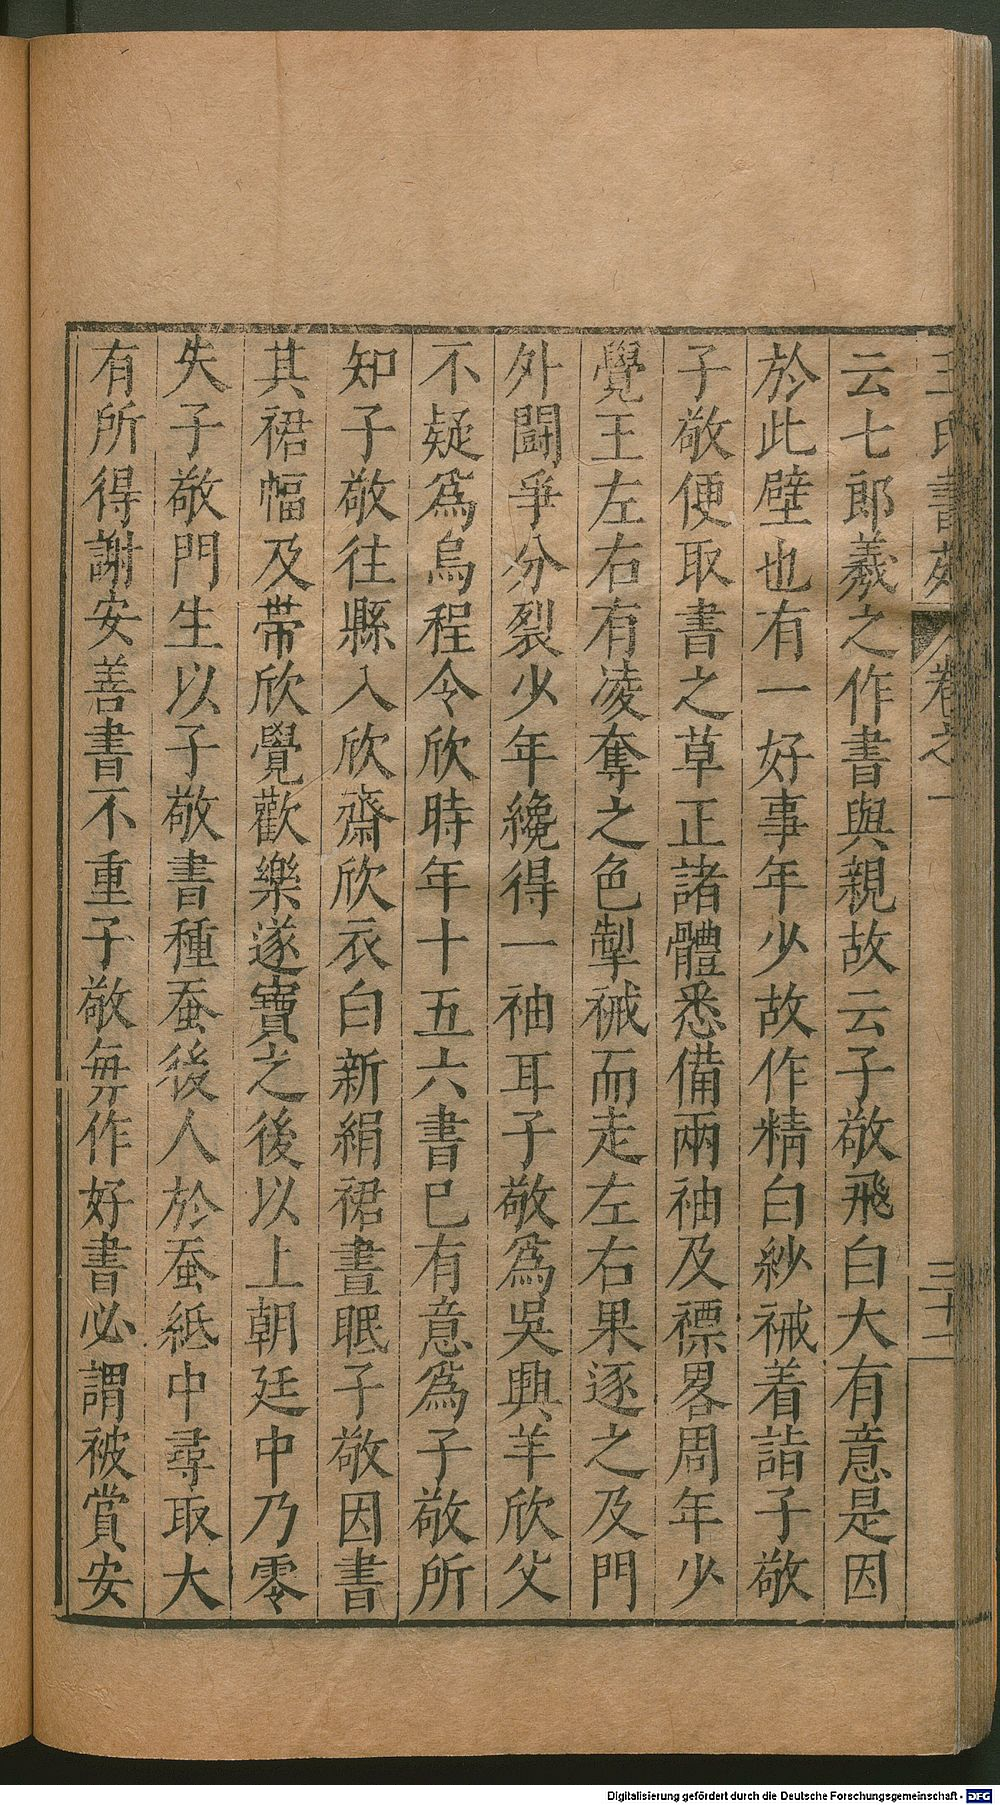 王氏書苑 卷之一 三十一
云七郎羲之作書與親故云子敬飛白大有意是因
於此壁也有一好事年少故作精白紗裓着詣子敬
子敬便取書之草正諸體悉備兩袖及褾畧周年少
覺王左右有凌奪之色掣裓而走左右果逐之及門
外鬪爭分裂少年纔得一袖耳子敬爲吳興羊欣父
不疑爲烏程令欣時年十五六書已有意爲子敬所
知子敬往縣入欣齋欣衣白新絹裙晝眠子敬因書
其裙幅及带欣覺歡樂遂寶之後以上朝廷中乃零
失子敬門生以子敬書種蚕後人於蚕紙中尋取大
有所得謝安善書不重子敬每作好書必謂被賞安
Digitalisierung gefördert durch die Deutsche Forschungsgemeinschaft - DFG